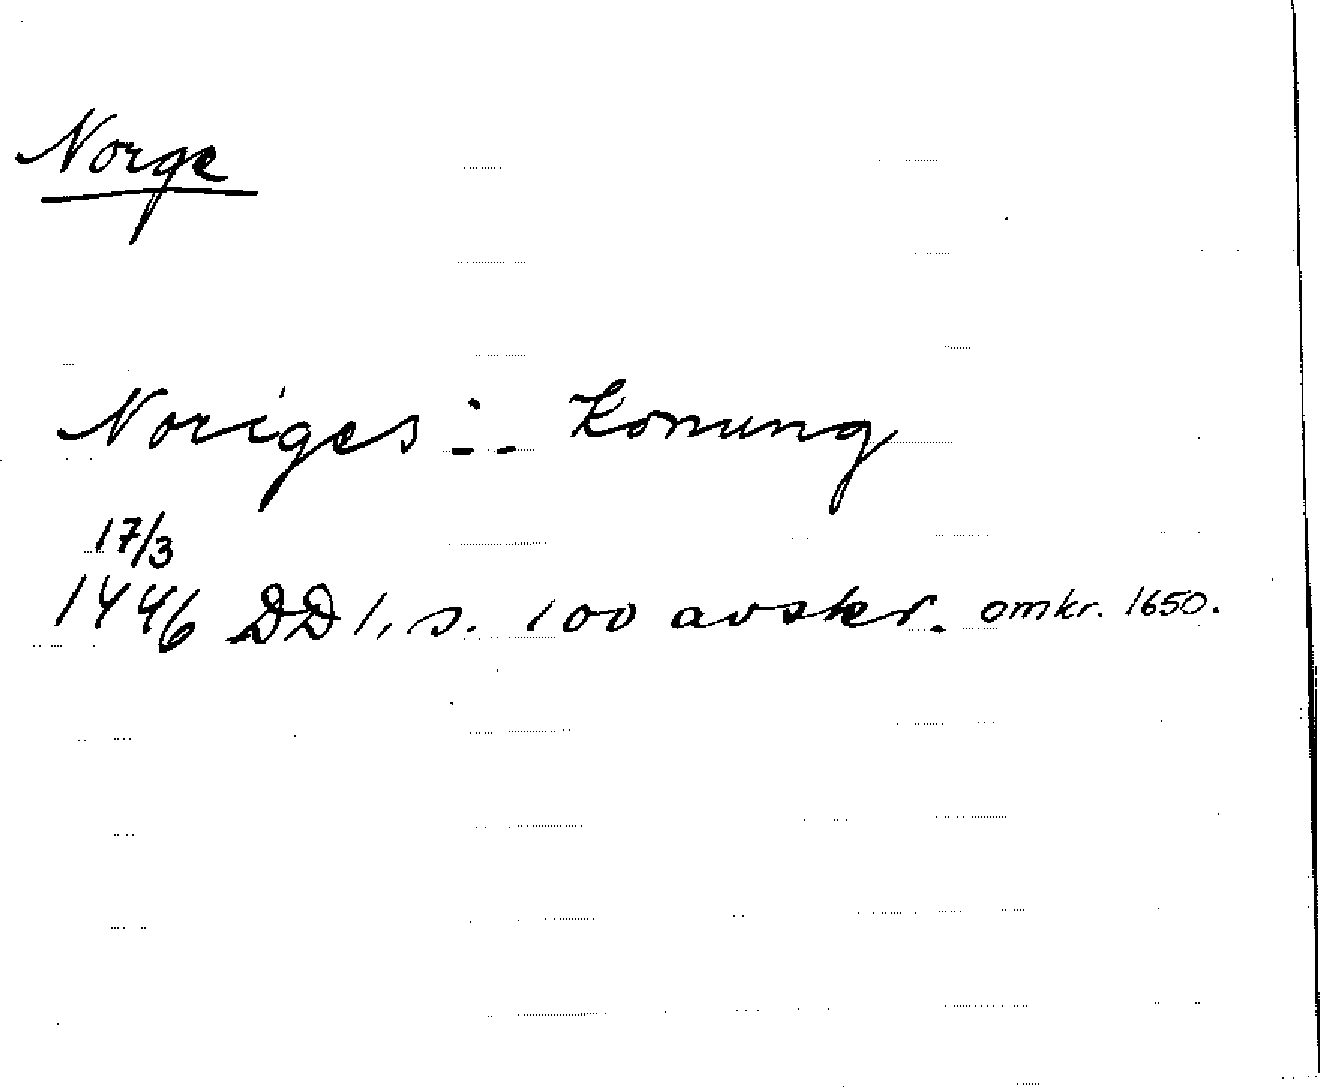 Norge
Noriges :- Konung
17/3
1446 DD 1, s. 100 avskr. omkr. 1650.